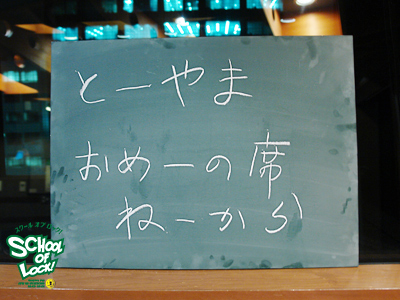 とーやま
おめーの席
ねーから
スクール オブ ロック!
SCHOOL
OF
LOCK!